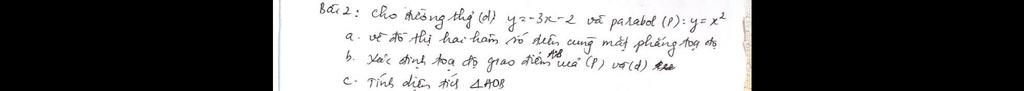 Bài 2: Cho đường thg (d) y=-3x-2 và parabol (P): y=x²
a. vẽ đồ thị hai hàm số trên cùng mặt phẳng toạ độ
b. Xác định toạ độ giao điểm A,B của (P) và (d)
c. Tính diện tích ΔAOB